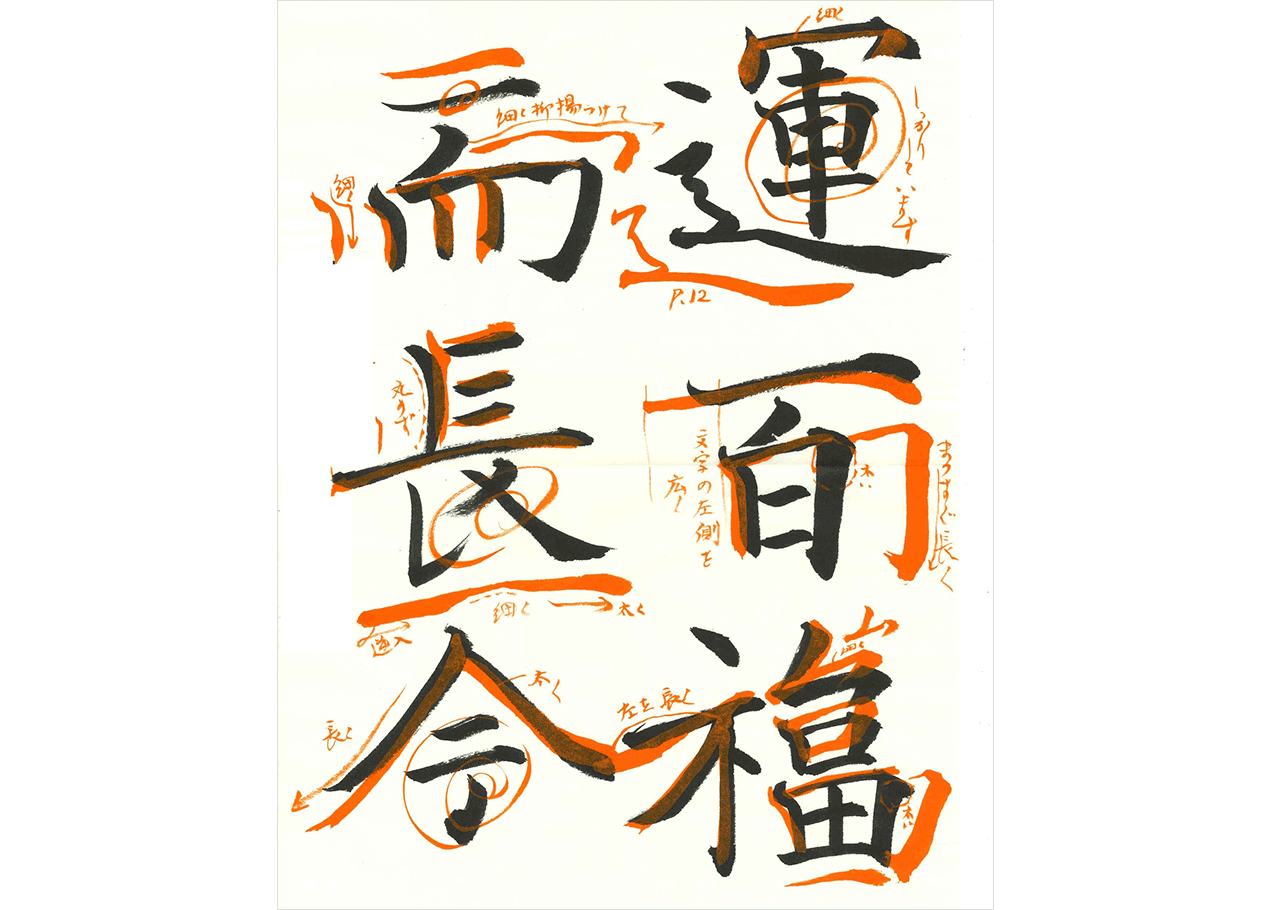 運
百
福
而
長
令
細く
しっかりしています
P.12
文字の左側を
広く
まっすぐ長く
細く
左を長く
細く抑揚つけて
細く
細く
太く
逆入
太く
長く